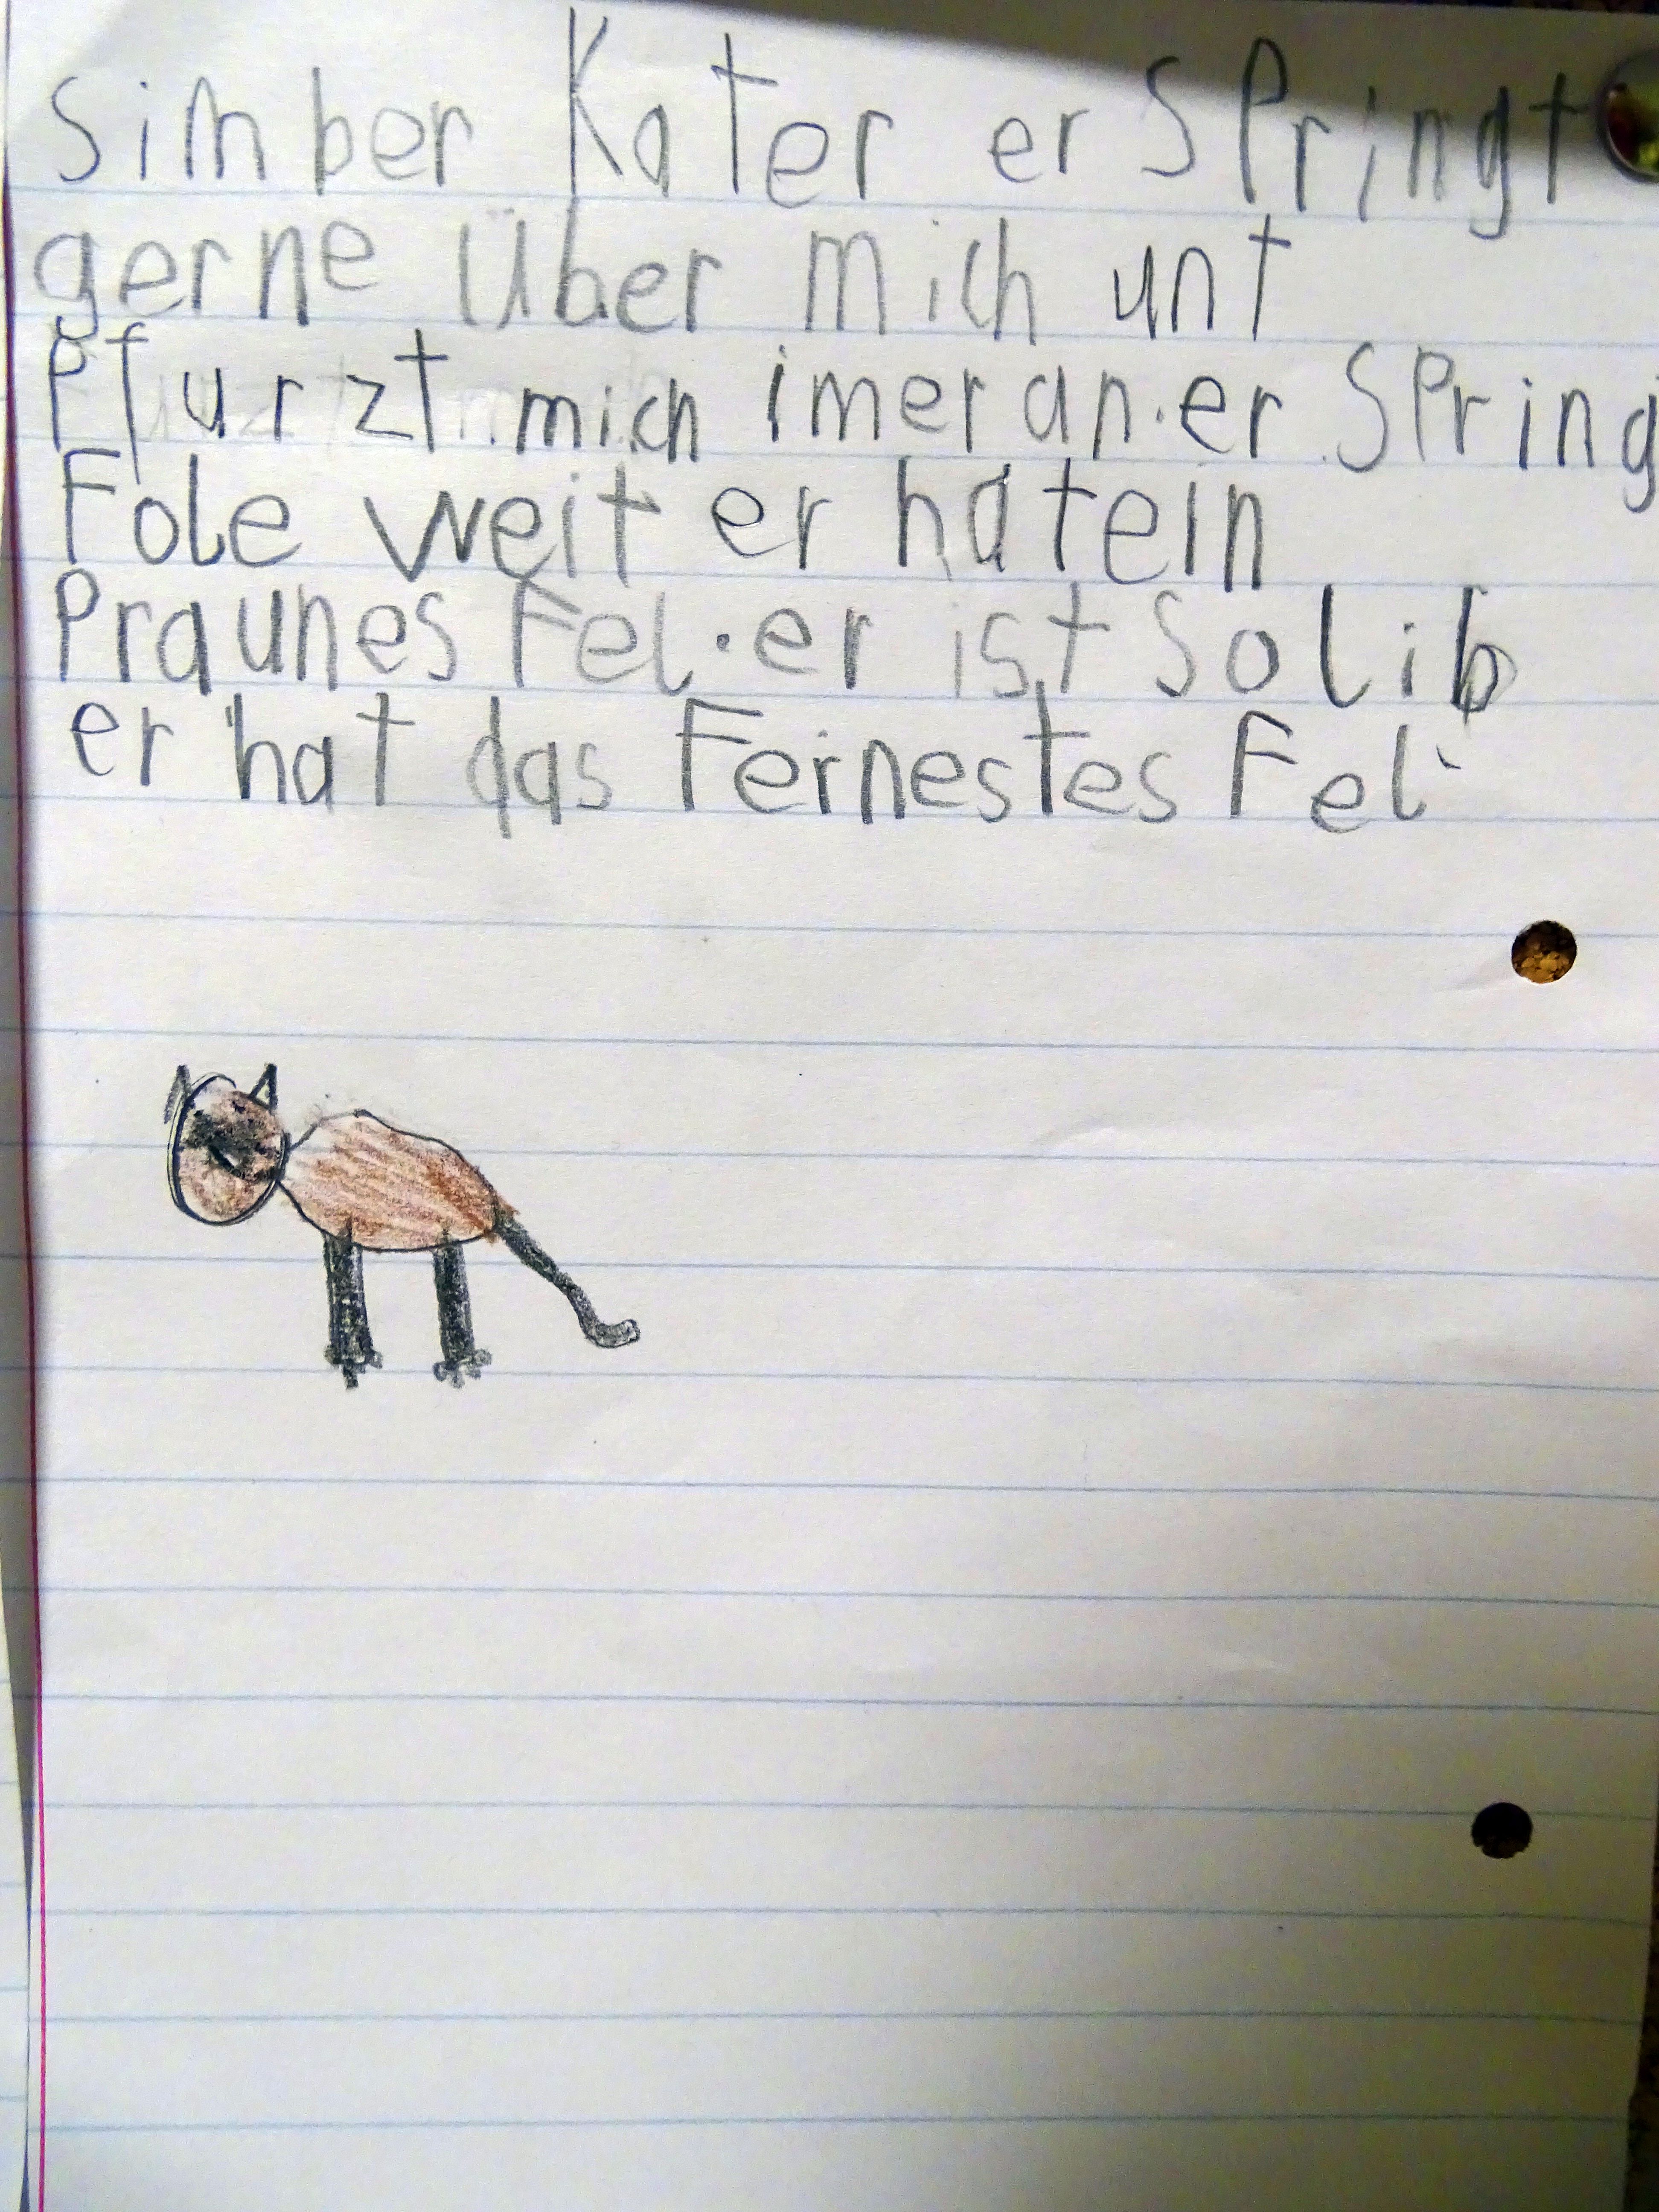 Simber Kater er Springt
gerne über mich unt
Pfurzt mich imer an. er Spring
Fole weit er hat ein
Praunes Fel. er ist so lib
er hat das Feinestes Fel.